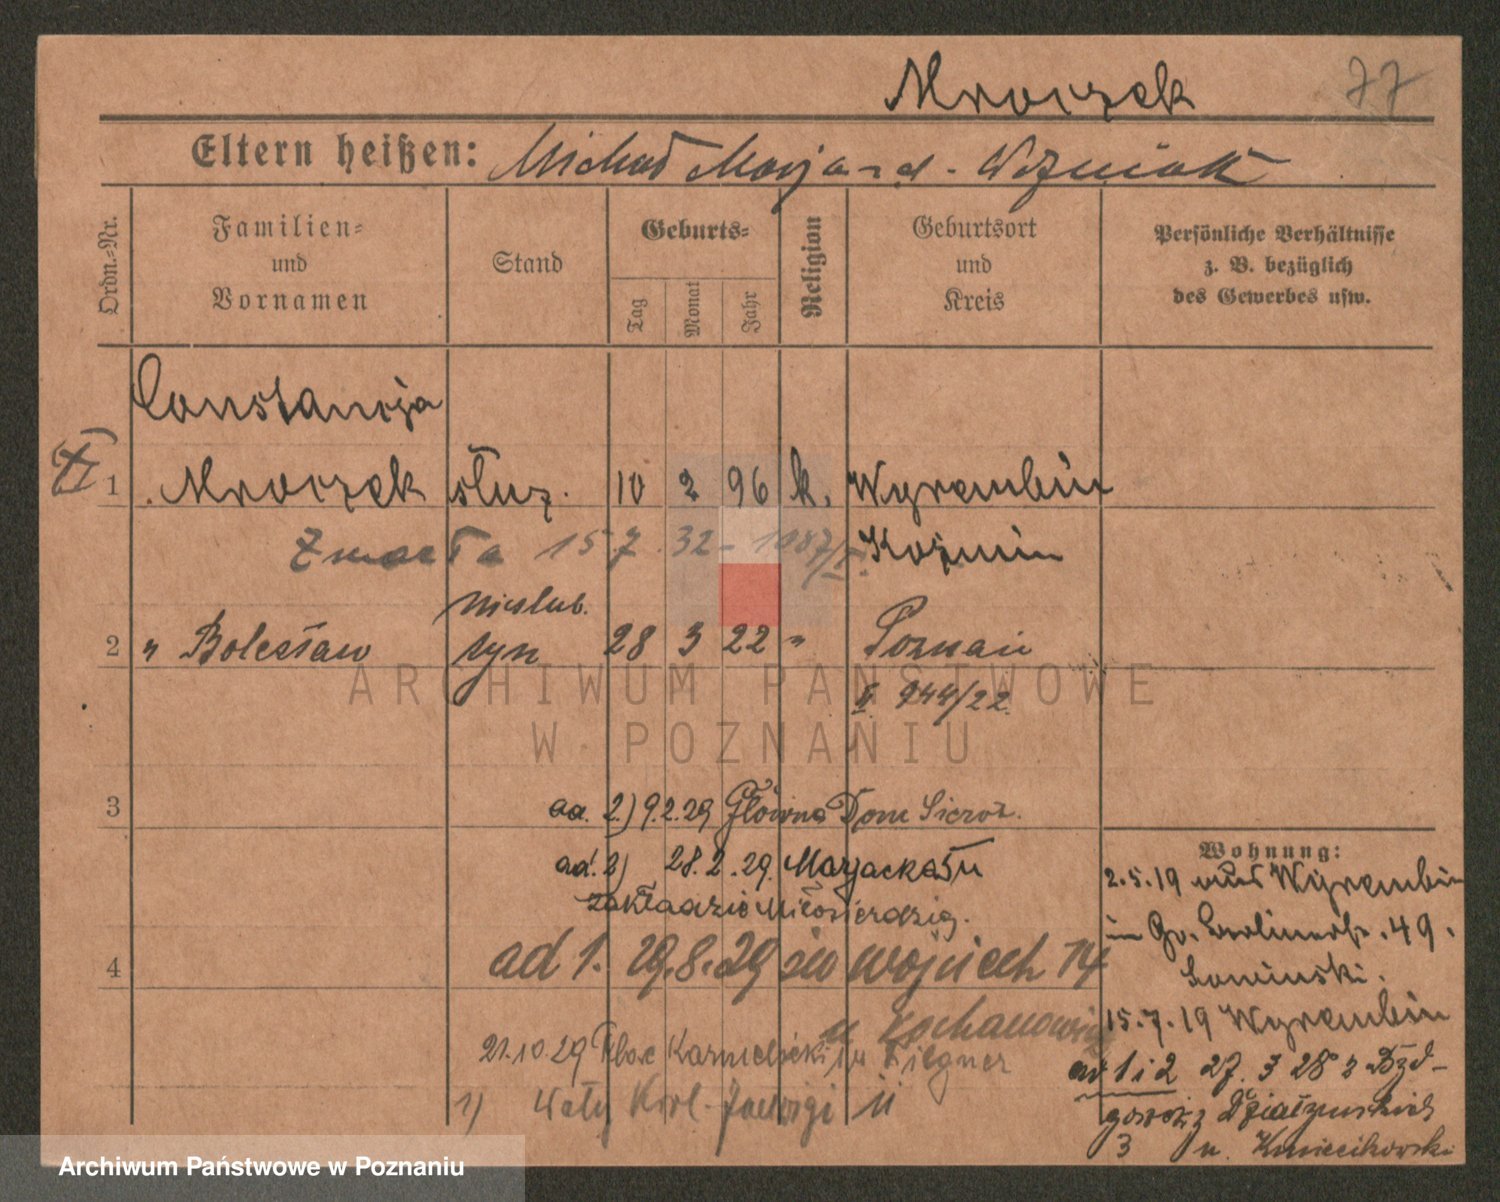 Mroczek 77
Eltern heißen: Michał Marjanna d. Woźniak
Ordn.-Nr.
Familien-
und
Vornamen
Stand
Geburts-
Tag
Monat
Jahr
Religion
Geburtsort
und
Kreis
Persönliche Verhältnisse
z. B. bezüglich
des Gewerbes usw.
Constancja
1 Mroczek służ. 10 2 96 k. Wyrembin
Zmarła 15 7 32 - 1087/ Koźmin
nieślub.
2 " Bolesław syn 28 3 22 " Poznań
944/22.
3
ad. 2.) 9.2.29 Główna Dom Sieroz.
ad. 2) 28.2.29. Marjacka
Zakładzie Miłosierdzia.
4
ad 1. 29.8.29 św Wojciech 14
u Kochanowicz
21.10.29 Plac Karmelicki u Pilgner
1) Wały Król. Jadwigi 11
Wohnung:
2.5.19 aus Wyrembin
in Gr. Berlinerstr. 49.
15.7.19 Wyrembin
ad 1 i 2 27. 3 28 z
Działyńskich
3 u.
ARCHIWUM PAŃSTWOWE
W POZNANIU
Archiwum Państwowe w Poznaniu